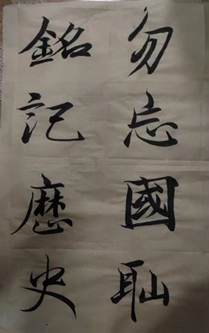 勿忘國耻
銘記歷史